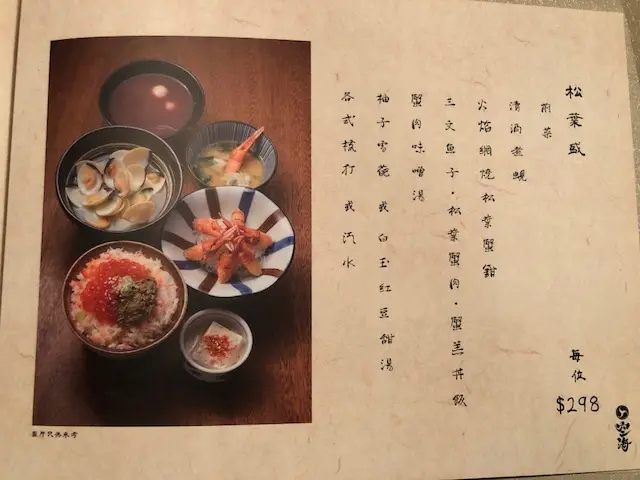 松葉盛
前菜
清酒煮蜆
火焰網燒松葉蟹鉗
三文魚子・松葉蟹肉・蟹羔丼飯
蟹肉味噌湯
柚子雪葩 或 白玉紅豆甜湯
各式梳打 或 汽水
每位
$298
空海
圖片只供參考